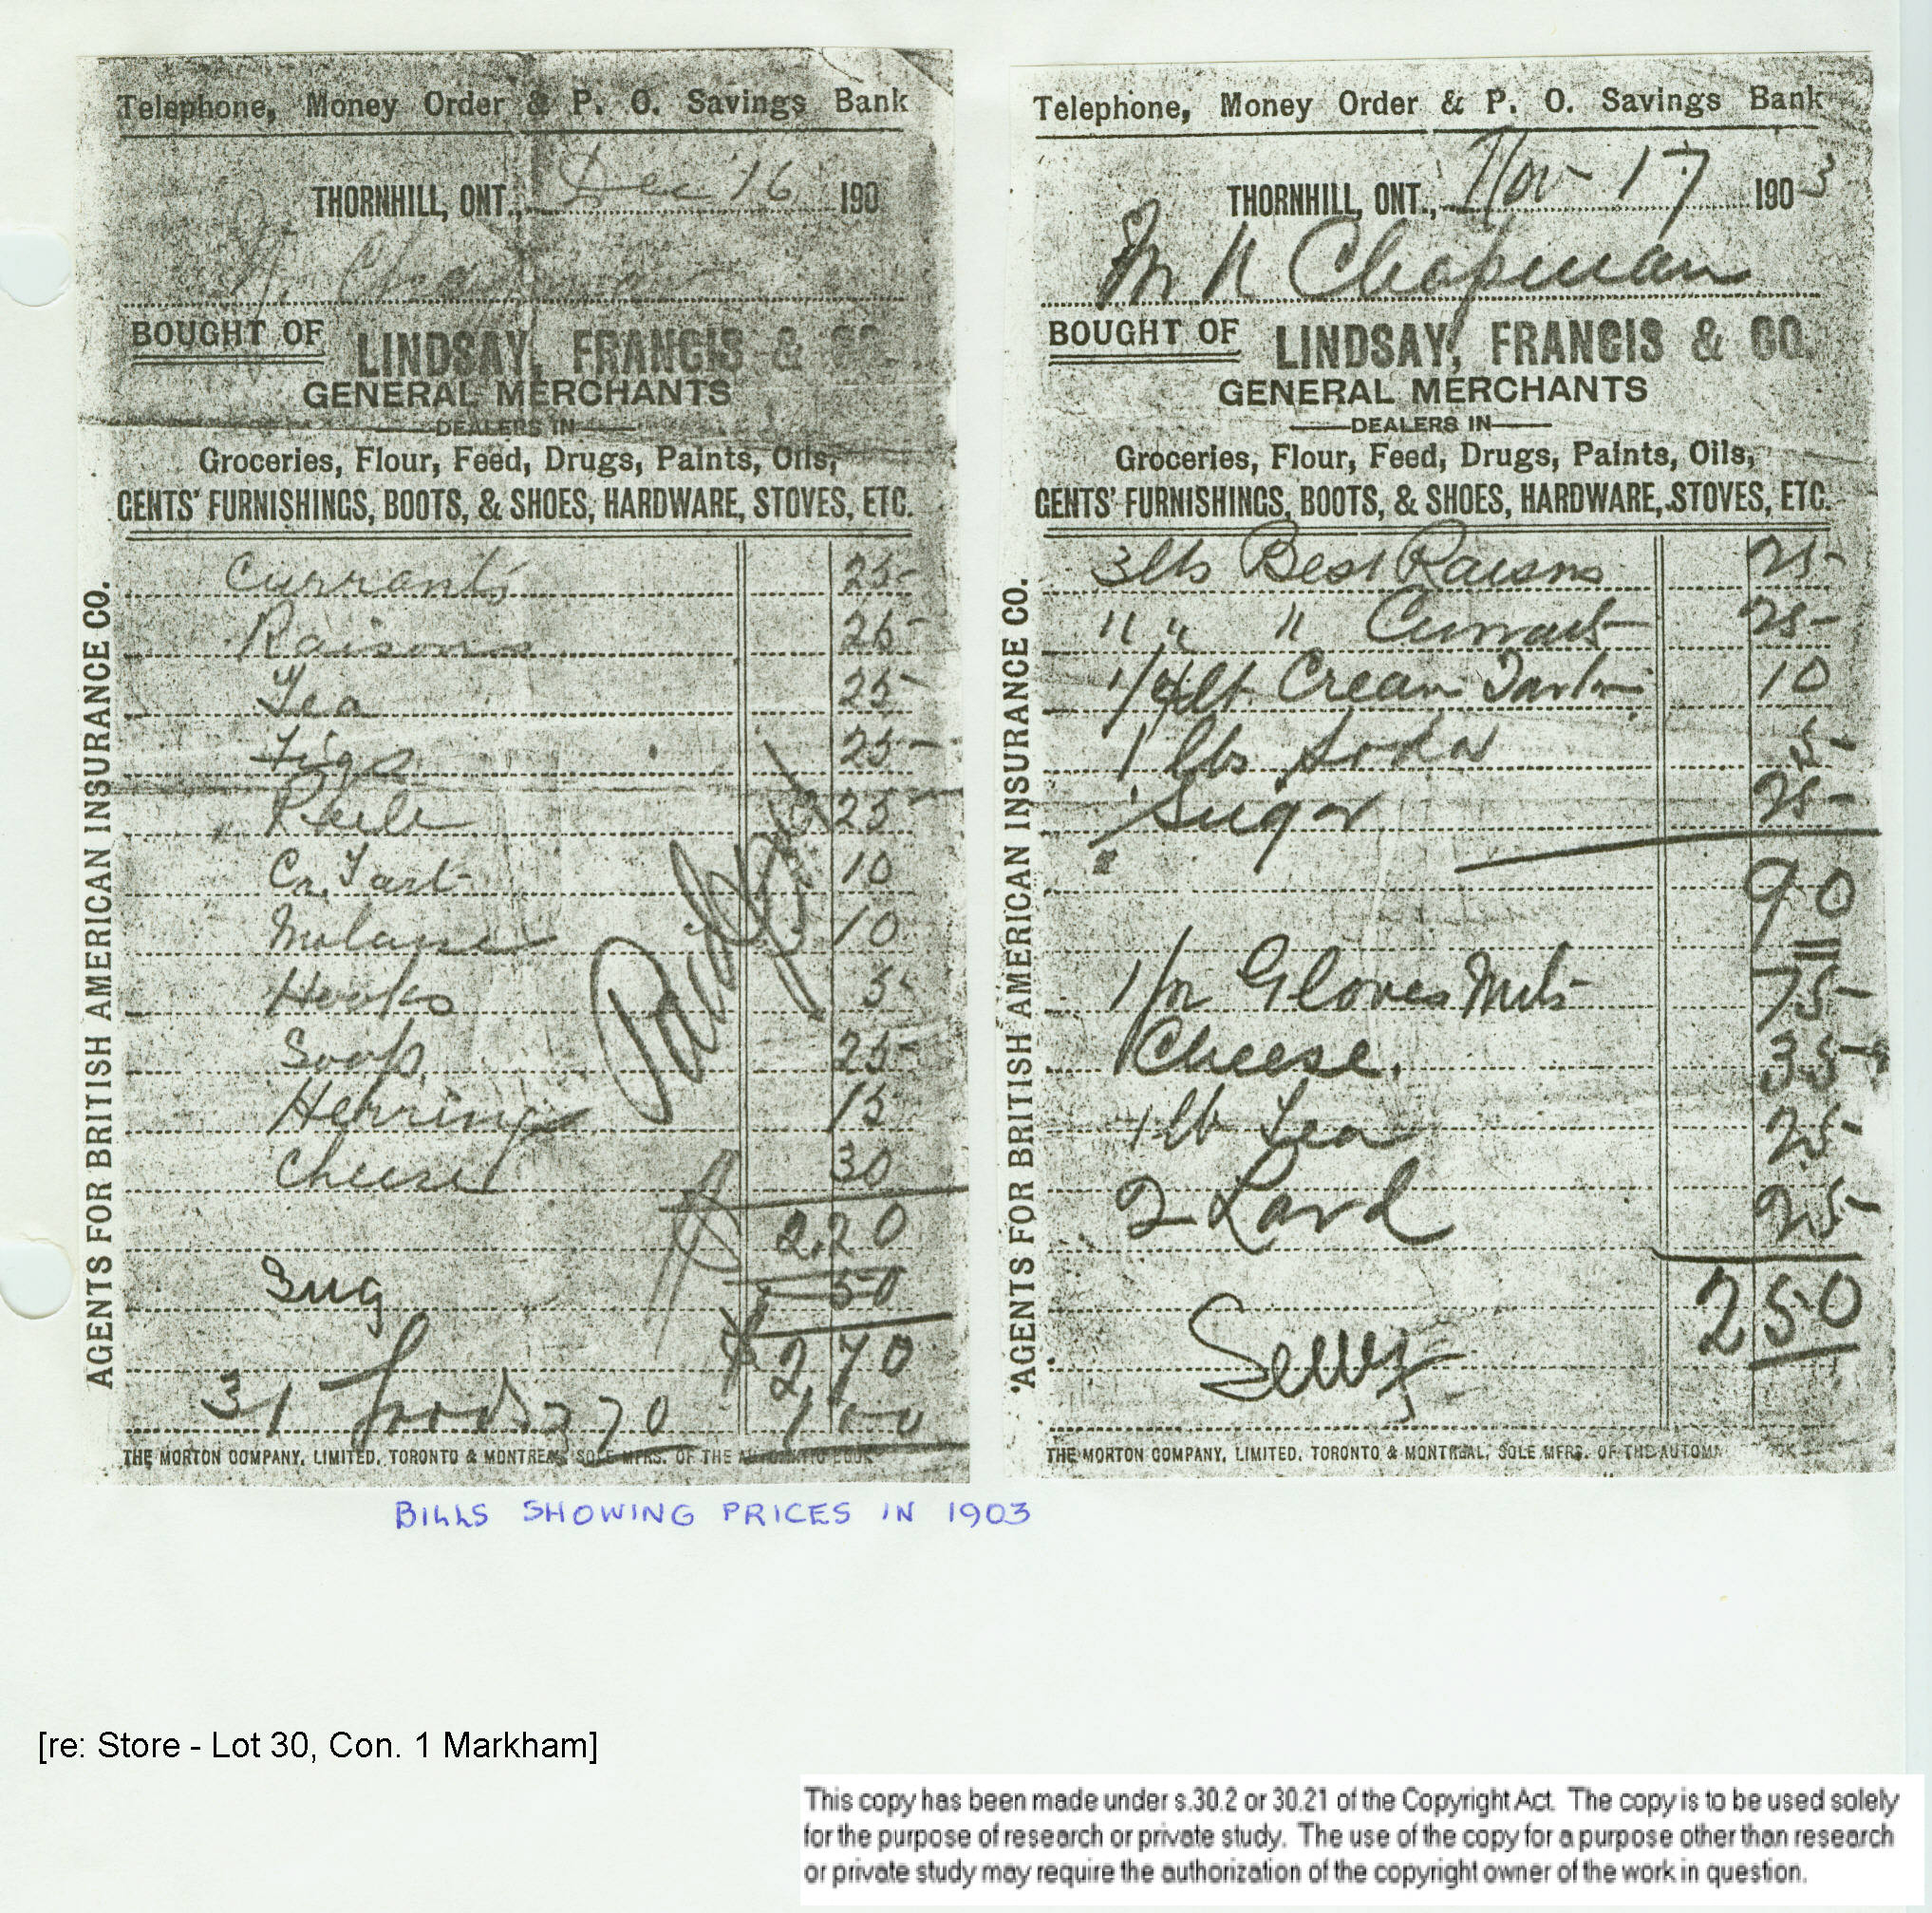 Telephone, Money Order & P. O. Savings Bank
THORNHILL, ONT., Dec 16 190
N. Chapman
BOUGHT OF LINDSAY, FRANCIS & CO.
GENERAL MERCHANTS
DEALERS IN
Groceries, Flour, Feed, Drugs, Paints, Oils,
GENTS' FURNISHINGS, BOOTS, & SHOES, HARDWARE, STOVES, ETC.
AGENTS FOR BRITISH AMERICAN INSURANCE CO.
Currants 25-
Raisons 25-
Tea 25-
Figs 25-
Peile 25-
Cr. Tart- 10
Molasses 10
Hooks 5-
Soap 25-
Herrings 15
Cheese 30
Paid
2.20
Sug 50
$2,70
31 270 1,00
THE MORTON COMPANY, LIMITED, TORONTO & MONTREAL, SOLE MFRS. OF THE AUTOMATIC BOOK
Telephone, Money Order & P. O. Savings Bank
THORNHILL, ONT., Nov 17 1903
Mr N Chapman
BOUGHT OF LINDSAY, FRANCIS & CO.
GENERAL MERCHANTS
DEALERS IN
Groceries, Flour, Feed, Drugs, Paints, Oils,
GENTS' FURNISHINGS, BOOTS, & SHOES, HARDWARE, STOVES, ETC.
AGENTS FOR BRITISH AMERICAN INSURANCE CO.
3lbs Best Raisons 25-
" " " Currants 25-
1/4lb. Cream Tartar 10
1 lbs Soda 5-
Sugar 25-
90
1/pr Gloves Mits 75-
Cheese. 35-
1 lb Tea 25-
2 Lard 25-
250
THE MORTON COMPANY, LIMITED, TORONTO & MONTREAL, SOLE MFRS. OF THE AUTOMA
BILLS SHOWING PRICES IN 1903
[re: Store - Lot 30, Con. 1 Markham]
This copy has been made under s.30.2 or 30.21 of the Copyright Act. The copy is to be used solely
for the purpose of research or private study. The use of the copy for a purpose other than research
or private study may require the authorization of the copyright owner of the work in question.